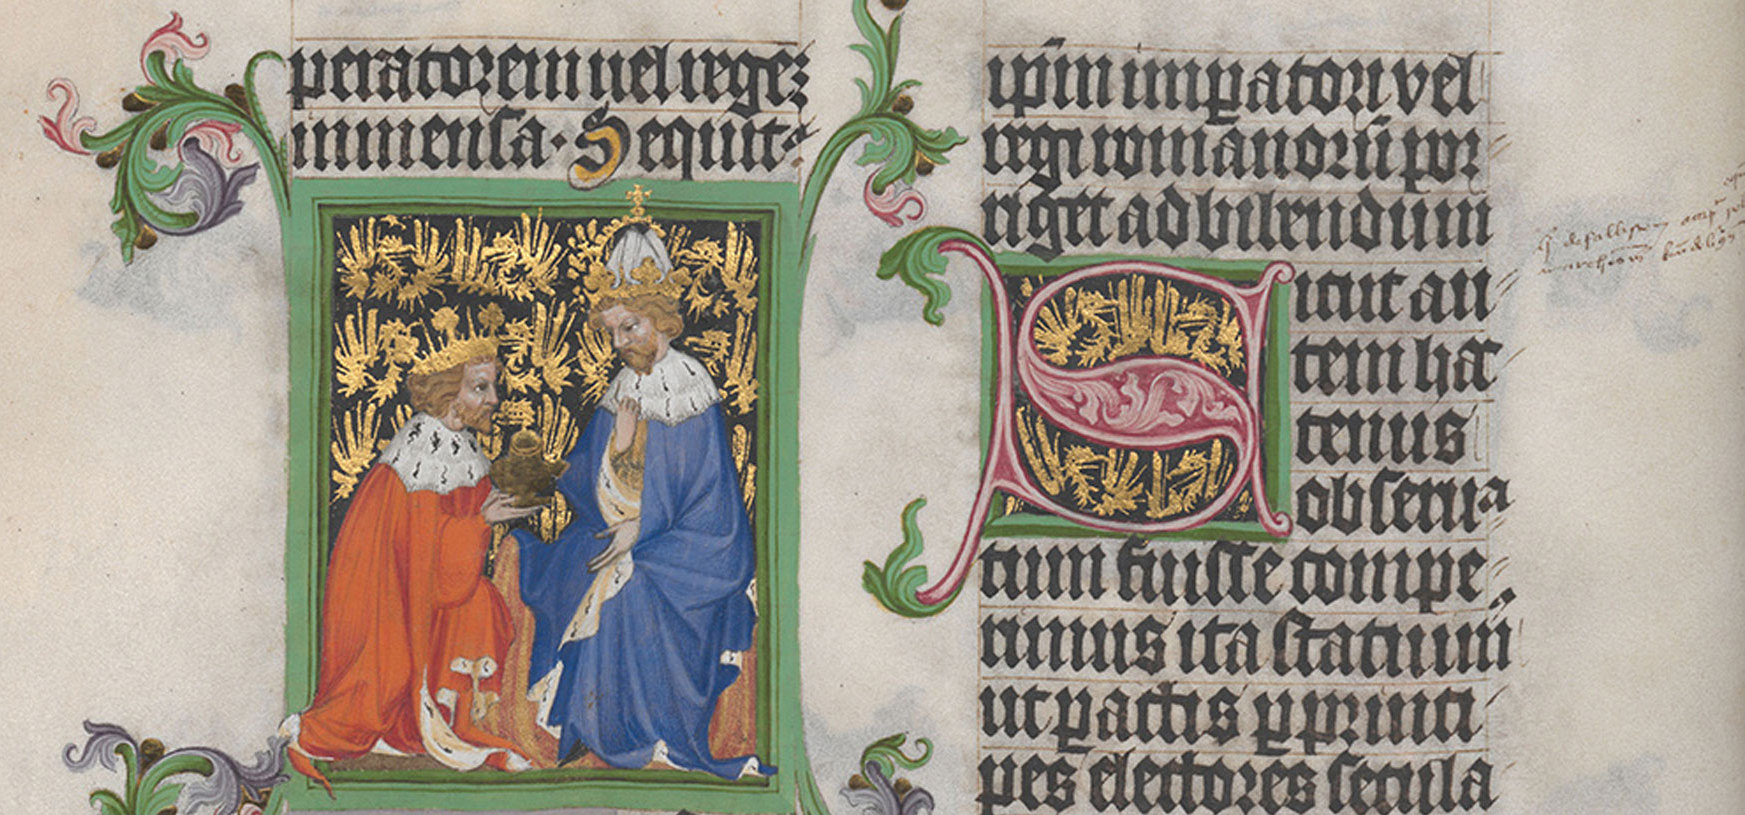 peratorem uel regez
in mensa. Sequit᷑
ip̄m imꝑatori vel
regi romanorū por
riget ad bibendum
Sicut au
tem hac
tenus
obserua
tum fuisse compe
rimus ita statuim᷒
ut ꝑactis ꝑ princi
pes electores secula